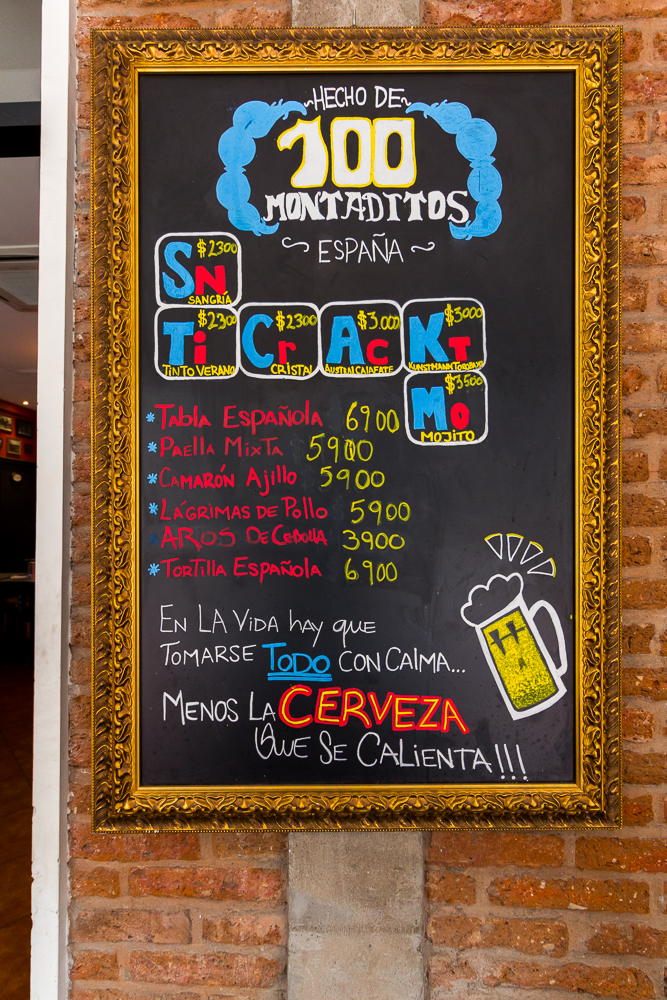 ~HECHO DE~
100
MONTADITOS
~ESPAÑA~
$2300
Sn
SANGRÍA
$2300
Ti
TINTO VERANO
$2300
Cr
CRISTAL
$3.000
Ac
AUSTRAL CALAFATE
$3000
Kt
KUNSTMANN TOROBAYO
$3500
Mo
MOJITO
*TABLA ESPAÑOLA 6900
*PAELLA MIXTA 5900
*CAMARÓN AJILLO 5900
*LÁGRIMAS DE POLLO 5900
*AROS DE CEBOLLA 3900
*TORTILLA ESPAÑOLA 6900
EN LA VIDA hay que
TOMARSE TODO CON CALMA...
MENOS LA CERVEZA
QUE SE CALIENTA!!!